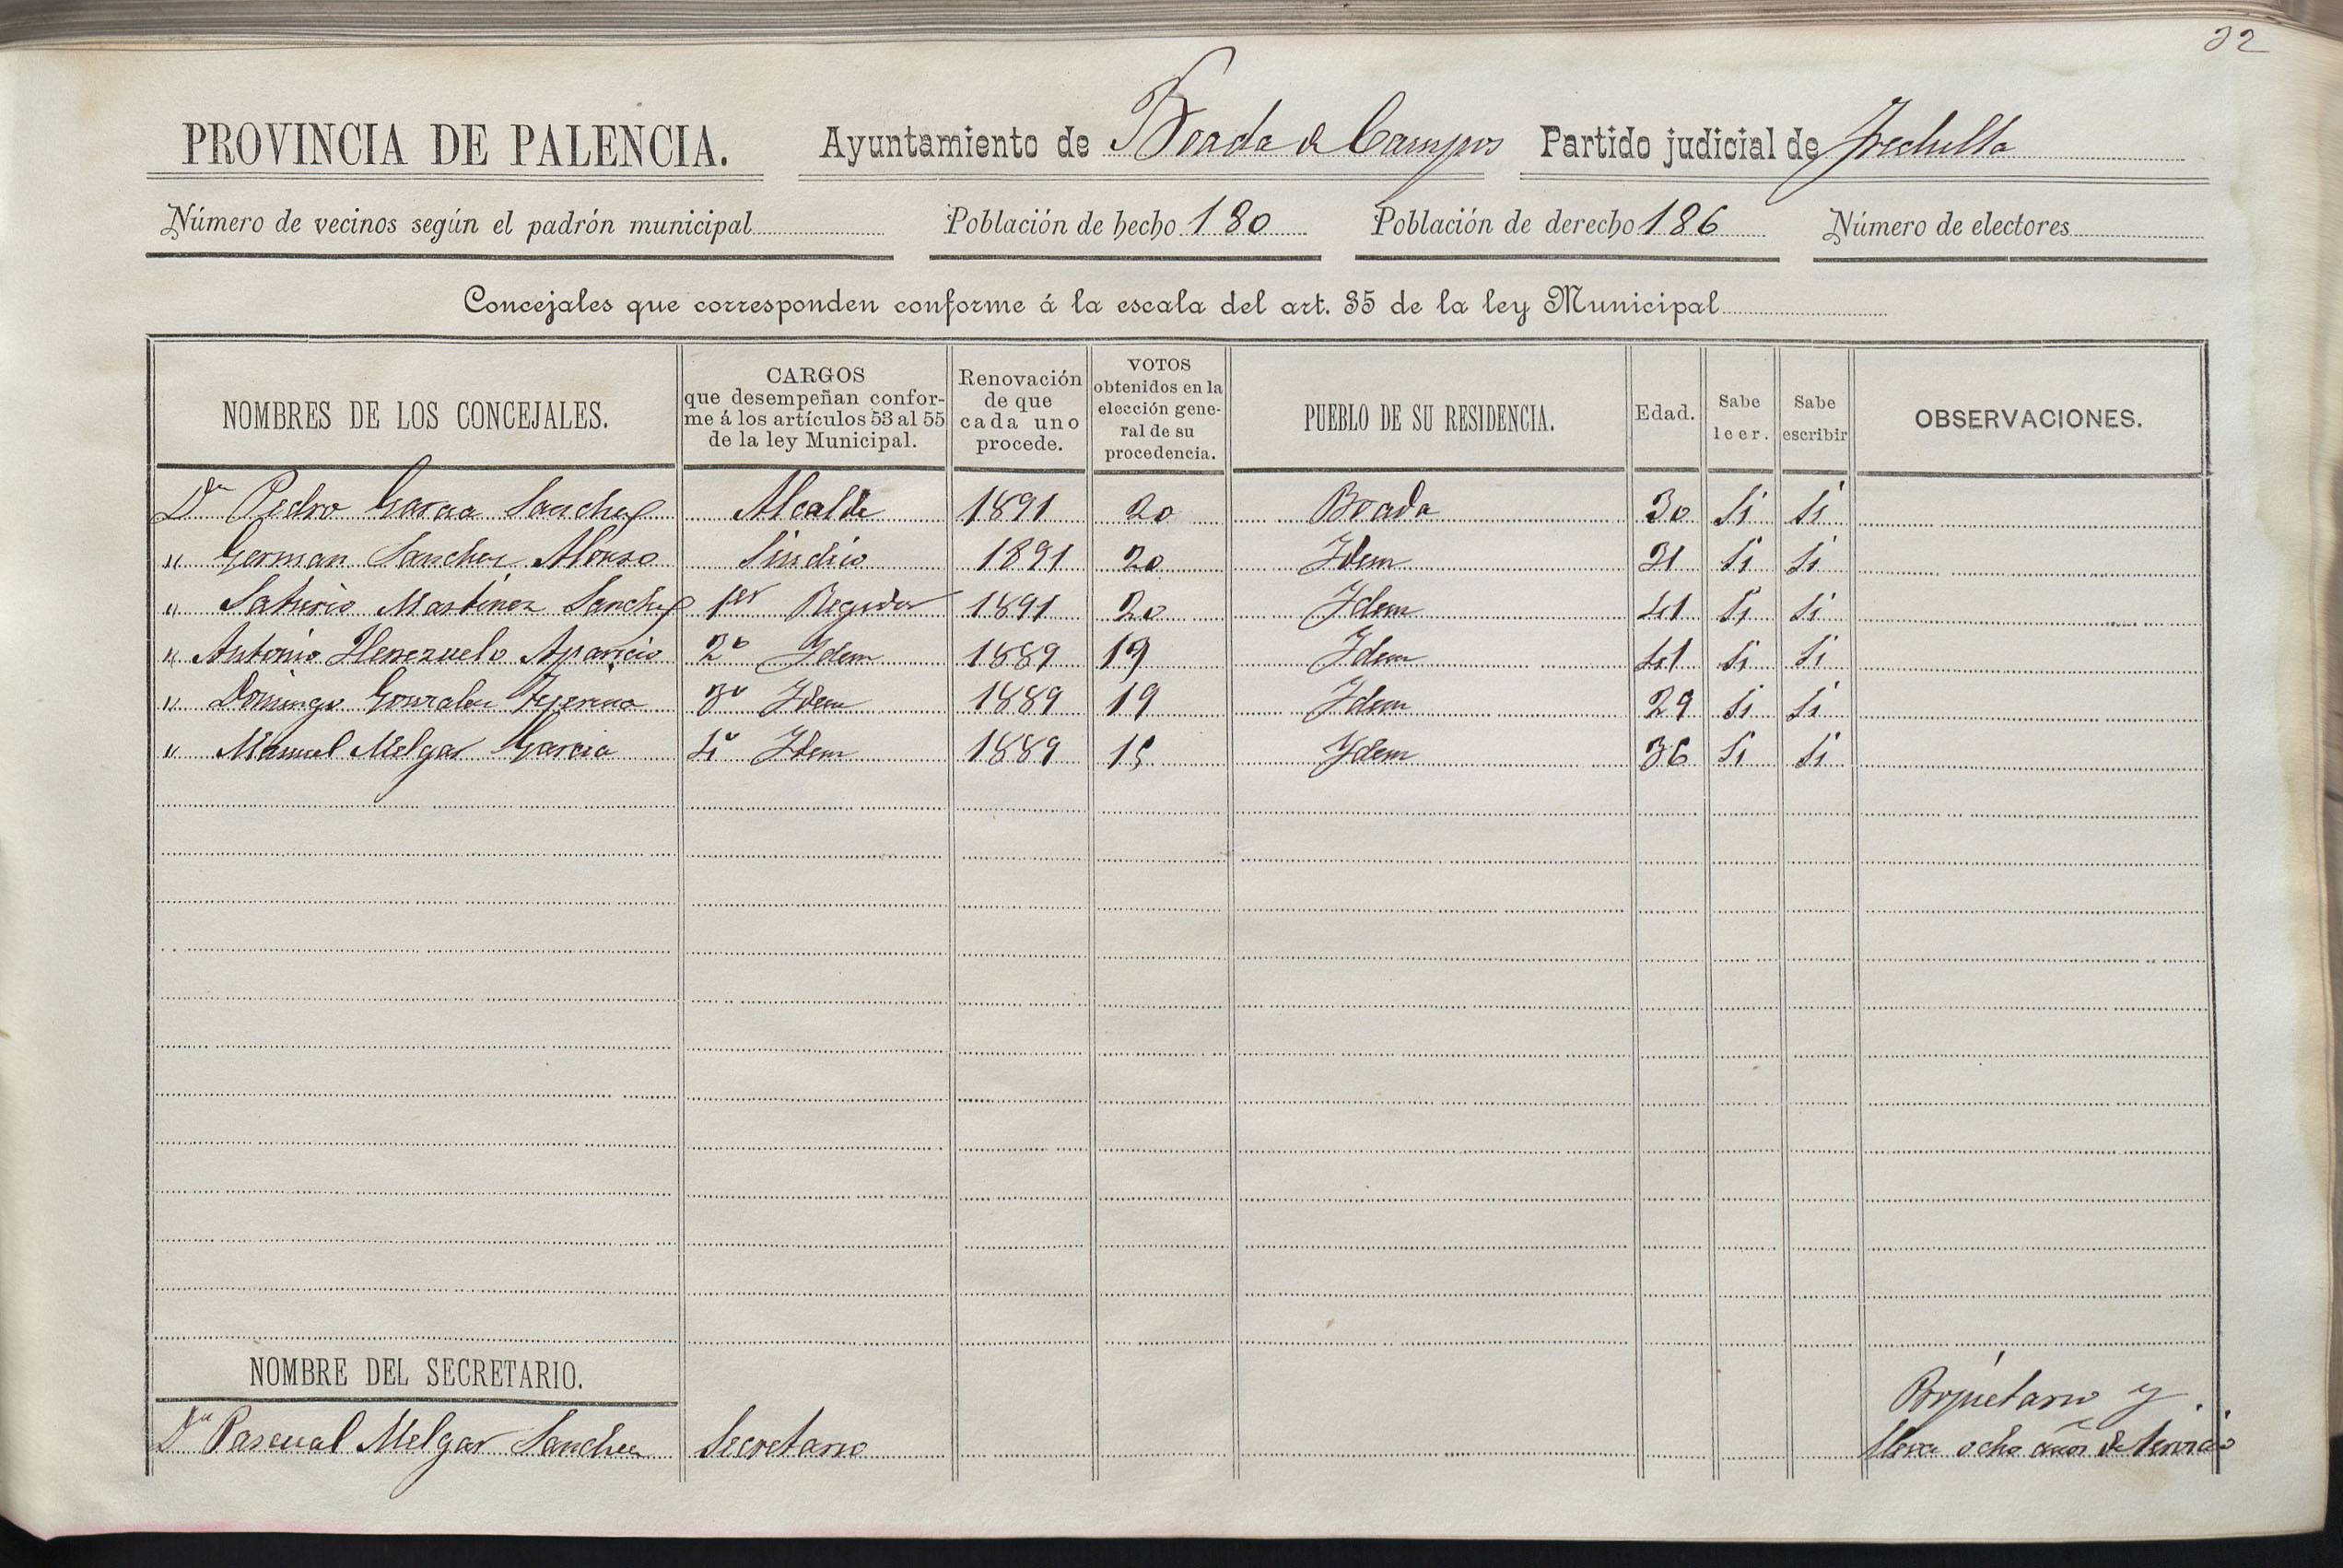 32
PROVINCIA DE PALENCIA. Ayuntamiento de Boada de Campos Partido judicial de Frechilla
Número de vecinos según el padrón municipal Población de hecho 180 Población de derecho 186 Número de electores
Concejales que corresponden conforme á la escala del art. 35 de la ley Municipal
NOMBRES DE LOS CONCEJALES. CARGOS que desempeñan confor-me á los artículos 53 al 55 de la ley Municipal. Renovación de que cada uno procede. VOTOS obtenidos en la elección gene-ral de su procedencia. PUEBLO DE SU RESIDENCIA. Edad. Sabe leer. Sabe escribir OBSERVACIONES.
Dn Pedro Garcia Sanchez Alcalde 1891 20 Boada 30 Si Si
" German Sanchez Alonso Sindico 1891 20 Idem 31 Si Si
" Saturio Martinez Sanchez 1er Regidor 1891 20 Idem 41 Si Si
" Antonio Herrezuelo Aparicio 2º Idem 1889 19 Idem 41 Si Si
" Domingo Gonzalez Tejerina 3º Idem 1889 19 Idem 29 Si Si
" Manuel Melgar Garcia 4º Idem 1889 15 Idem 36 Si Si
NOMBRE DEL SECRETARIO.
Dn Pascual Melgar Sanchez Secretario Propietario y
lleva ocho años de servicio